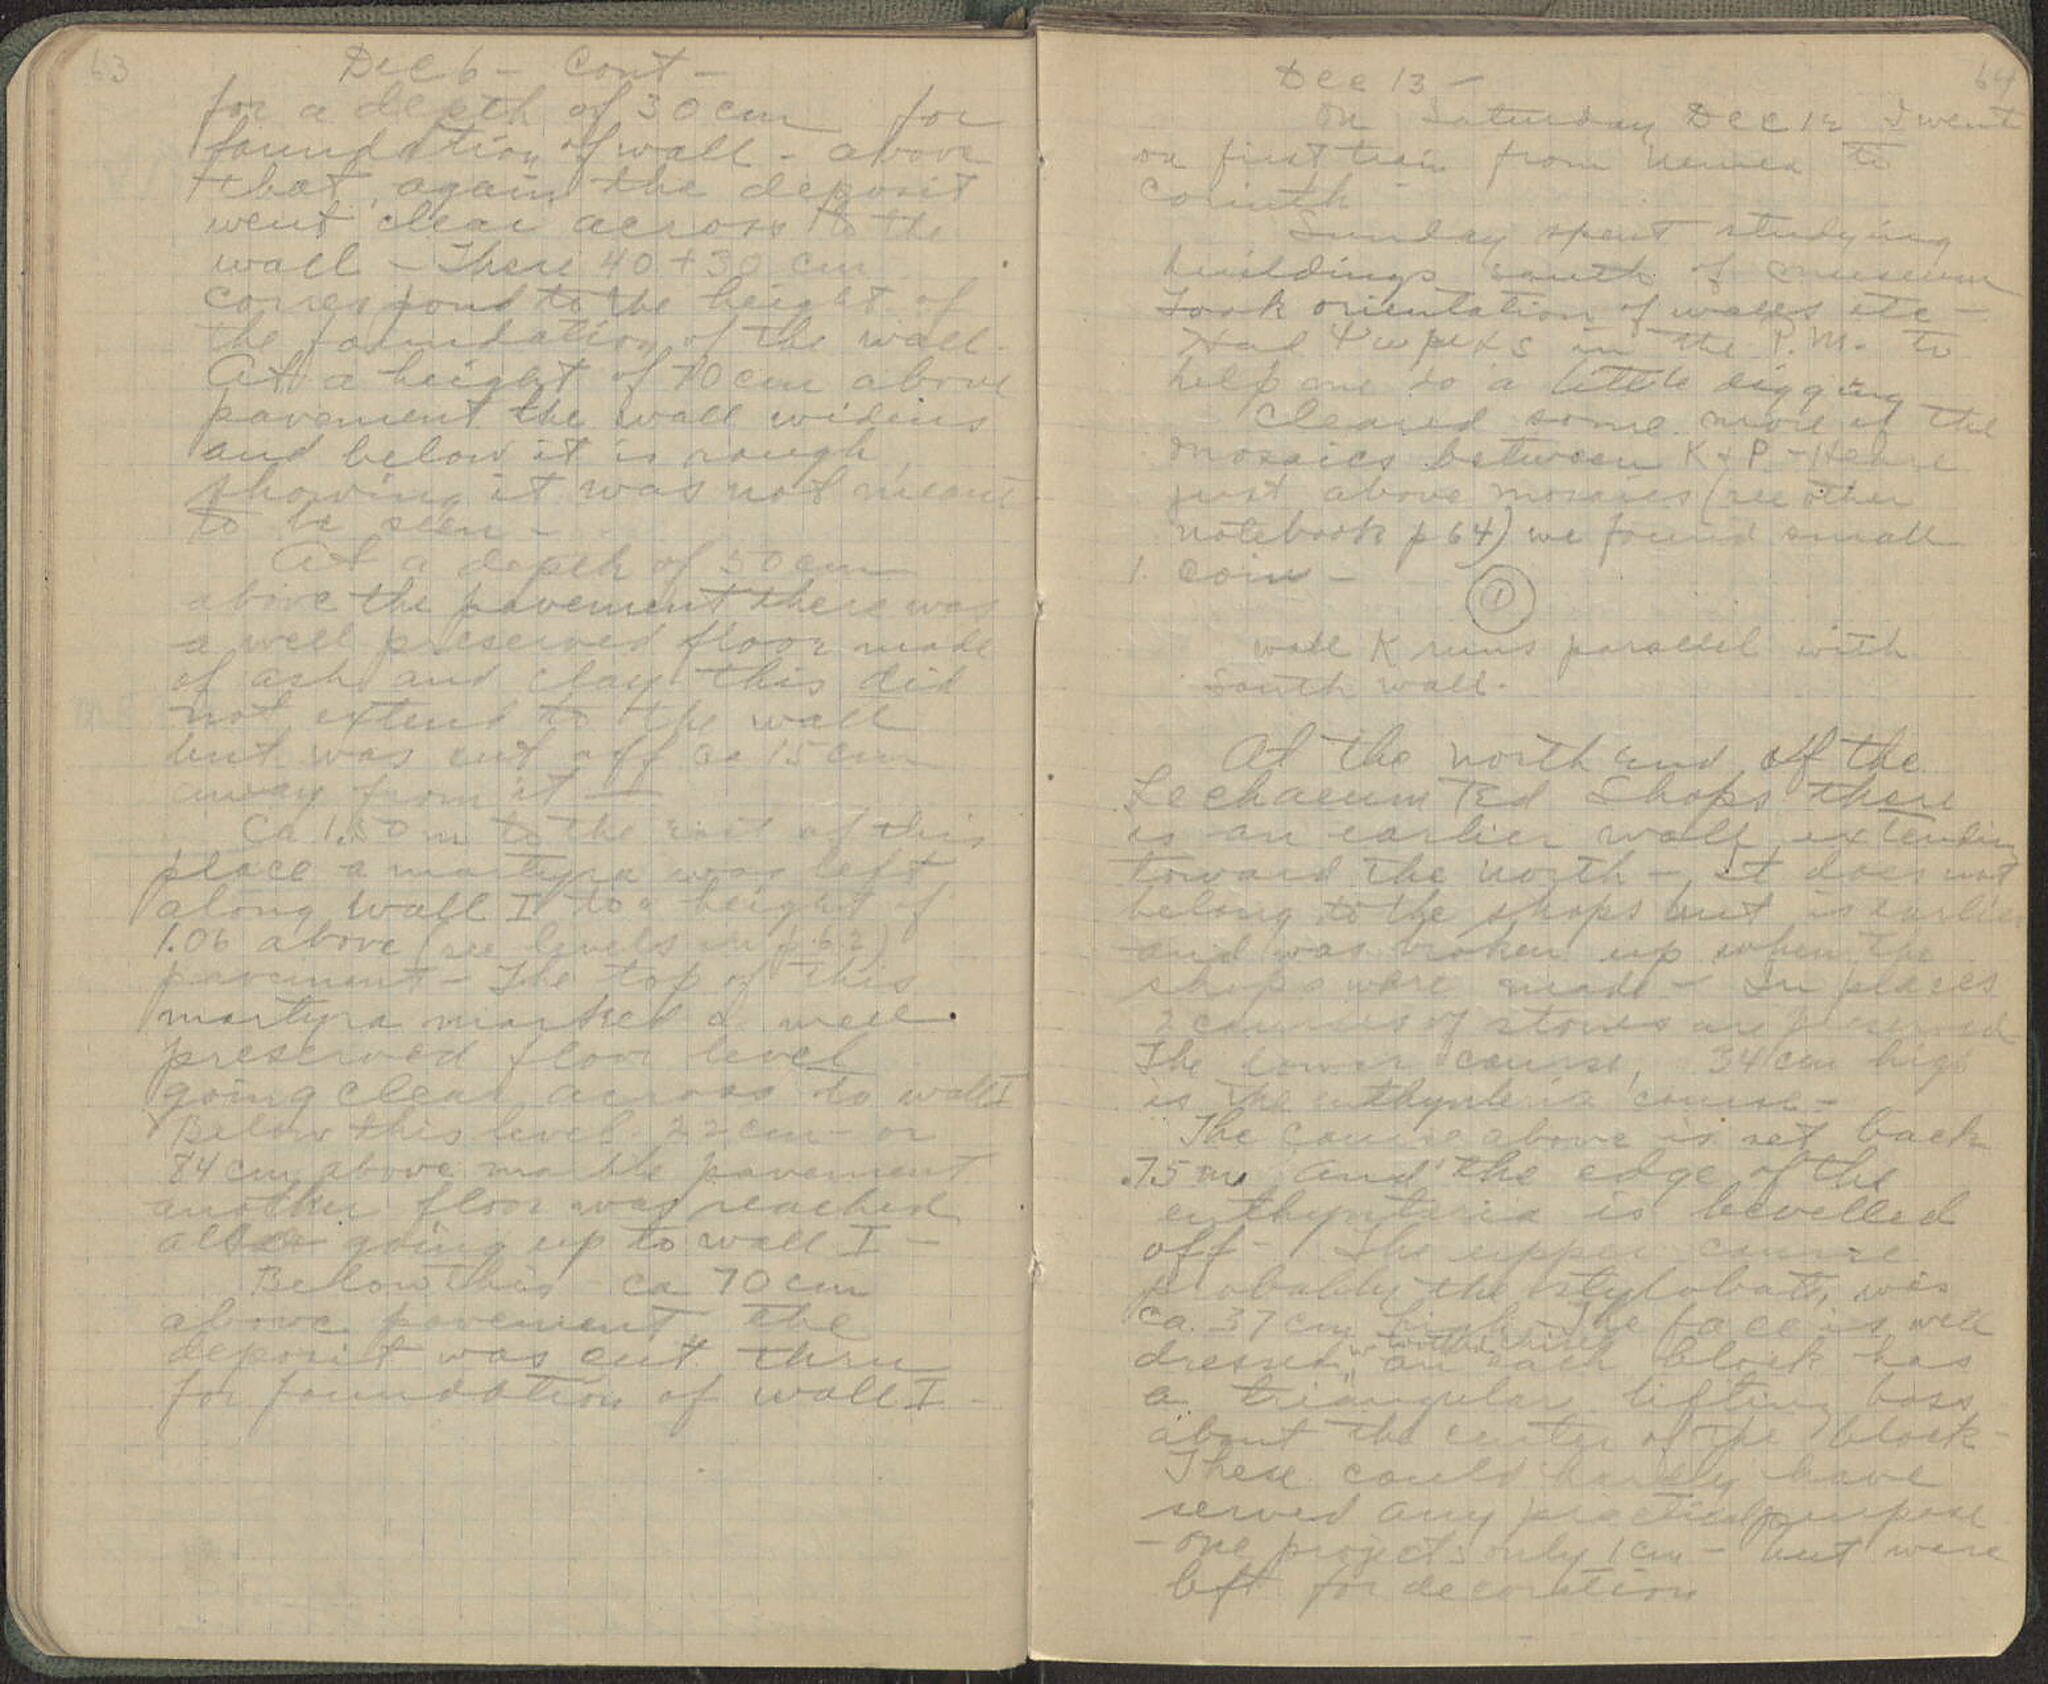 63
Dec 6 - Cont -
for a depth of 30 cm for
foundation of wall - above
that, again the deposit
went clear across to the
wall - These 40 + 30 cm
correspond to the height of
the foundation of the wall.
At a height of 70 cm above
pavement the wall widens
and below it is rough,
showing it was not meant
to be seen -
At a depth of 50 cm
above the pavement there was
a well preserved floor made
of ash and clay this did
not extend to the wall
but was cut off ca 15 cm
away from it -
Ca 1.50 m to the east of this
place a martyra was left
along wall I to a height of
1.06 above (see levels on p. 62)
pavement - The top of this
martyra marked a well
preserved floor level
going clear across to wall I
Below this level 22 cm - or
84 cm above marble pavement
another floor was reached
also going up to wall I -
Below this ca 70 cm
above pavement the
deposit was cut thru
for foundation of wall I -
64
Dec 13 -
On Saturday Dec 12 I went
on first train from Nemea to
Corinth -
Sunday spent studying
buildings south of museum
Took orientation of walls etc -
Had 4 in the P.M. to
help me do a little digging
Cleared some more of the
mosaics between K + P - Here
just above mosaics (see other
notebook p 64) we found small
1. coin -
1
wall K runs parallel with
South wall.
At the north end of the
Lechaeum Rd Shops there
is an earlier wall extending
toward the north - it does not
belong to the shops but is earlier
and was broken up when the
shops were made - In places
2 courses of stones are preserved
The lower course, 34 cm high
is the euthynteria course -
The course above is set back
.75 m and the edge of the
euthynteria is bevelled
off - The upper course
probably the stylobate, was
ca. 37 cm high - The face is well
dressed, w toothed chisel
an each block has
a triangular lifting boss
about the center of the block -
These could hardly have
served any practical purpose
- one projects only 1 cm - but were
left for decoration